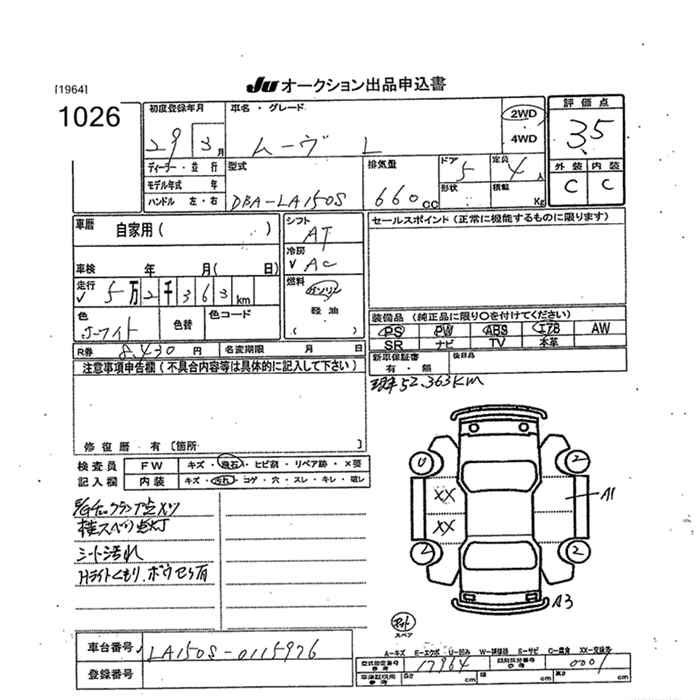 [1964]
JU オークション出品申込書
1026
初度登録年月
29 3月
車名・グレード
ムーヴ L
2WD
4WD
評価点
3.5
外装 内装
C C
ディーラー・並行
モデル年式 年
ハンドル 左・右
型式
DBA-LA150S
排気量
660cc
ドア
5
形状
定員
4人
積載
Kg
車歴 自家用( )
車検 年 月( 日)
走行 5万2千363km
シフト
AT
冷房
AC
燃料
ガソリン
軽油
( )
色
色替
色コード
R券 8,430円 名変期限 月 日
セールスポイント(正常に機能するものに限ります)
装備品(純正品に限り○を付けてください)
PS PW ABS エアB AW
SR ナビ TV 本革
新車保証書
有・無
後日品
現車52,363KM
注意事項申告欄(不具合内容等は具体的に記入して下さい)
修復歴・有〔箇所 〕
検査員
記入欄
FW キズ・飛石・ヒビ割・リペア跡・×要
内装 キズ・汚れ・コゲ・穴・スレ・キレ・破レ
横スベリ点灯
シート汚れ
Hライトくもり、ボウセイ有
XX
XX
A1
A3
スペア
A-キズ E-エクボ U-凹み W-補修跡 S-サビ C-腐食 XX-交換済
車台番号 LA150S-0115976
登録番号
型式指定番号
17964
類別区分番号
0001
長さ cm 幅 cm 高さ cm